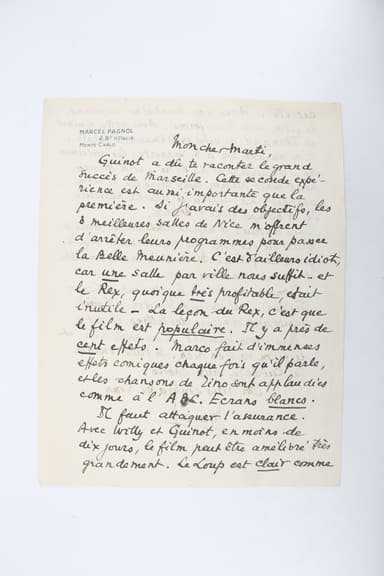 MARCEL PAGNOL
2, Bd D'ITALIE
MONTE CARLO
Mon cher Marti,
Guinot a dû te raconter le grand
succès de Marseille. Cette seconde expé-
rience est aussi importante que la
première. Si j'avais des objectifs, les
3 meilleures salles de Nice m'offrent
d'arrêter leurs programmes pour passer
la Belle Meunière. C'est d'ailleurs idiot,
car une salle par ville nous suffit - et
le Rex, quoique très profitable, était
inutile - La leçon du Rex, c'est que
le film est populaire. Il y a près de
cent effets. Marco fait d'immenses
effets comiques chaque fois qu'il parle,
et les chansons de Tino sont applaudies
comme à l'A.B.C. Ecrans blancs.
Il faut attaquer l'assurance.
Avec Willy et Guinot, en moins de
dix jours, le film peut être amélioré très
grandement. Le Loup est clair comme